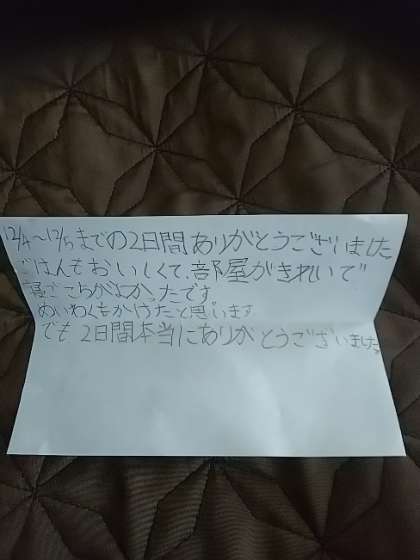 12/4〜12/5までの2日間ありがとうございました
ごはんもおいしくて、部屋がきれいで
寝ごこちがよかったです
めいわくもかけたと思います
でも2日間本当にありがとうございました。